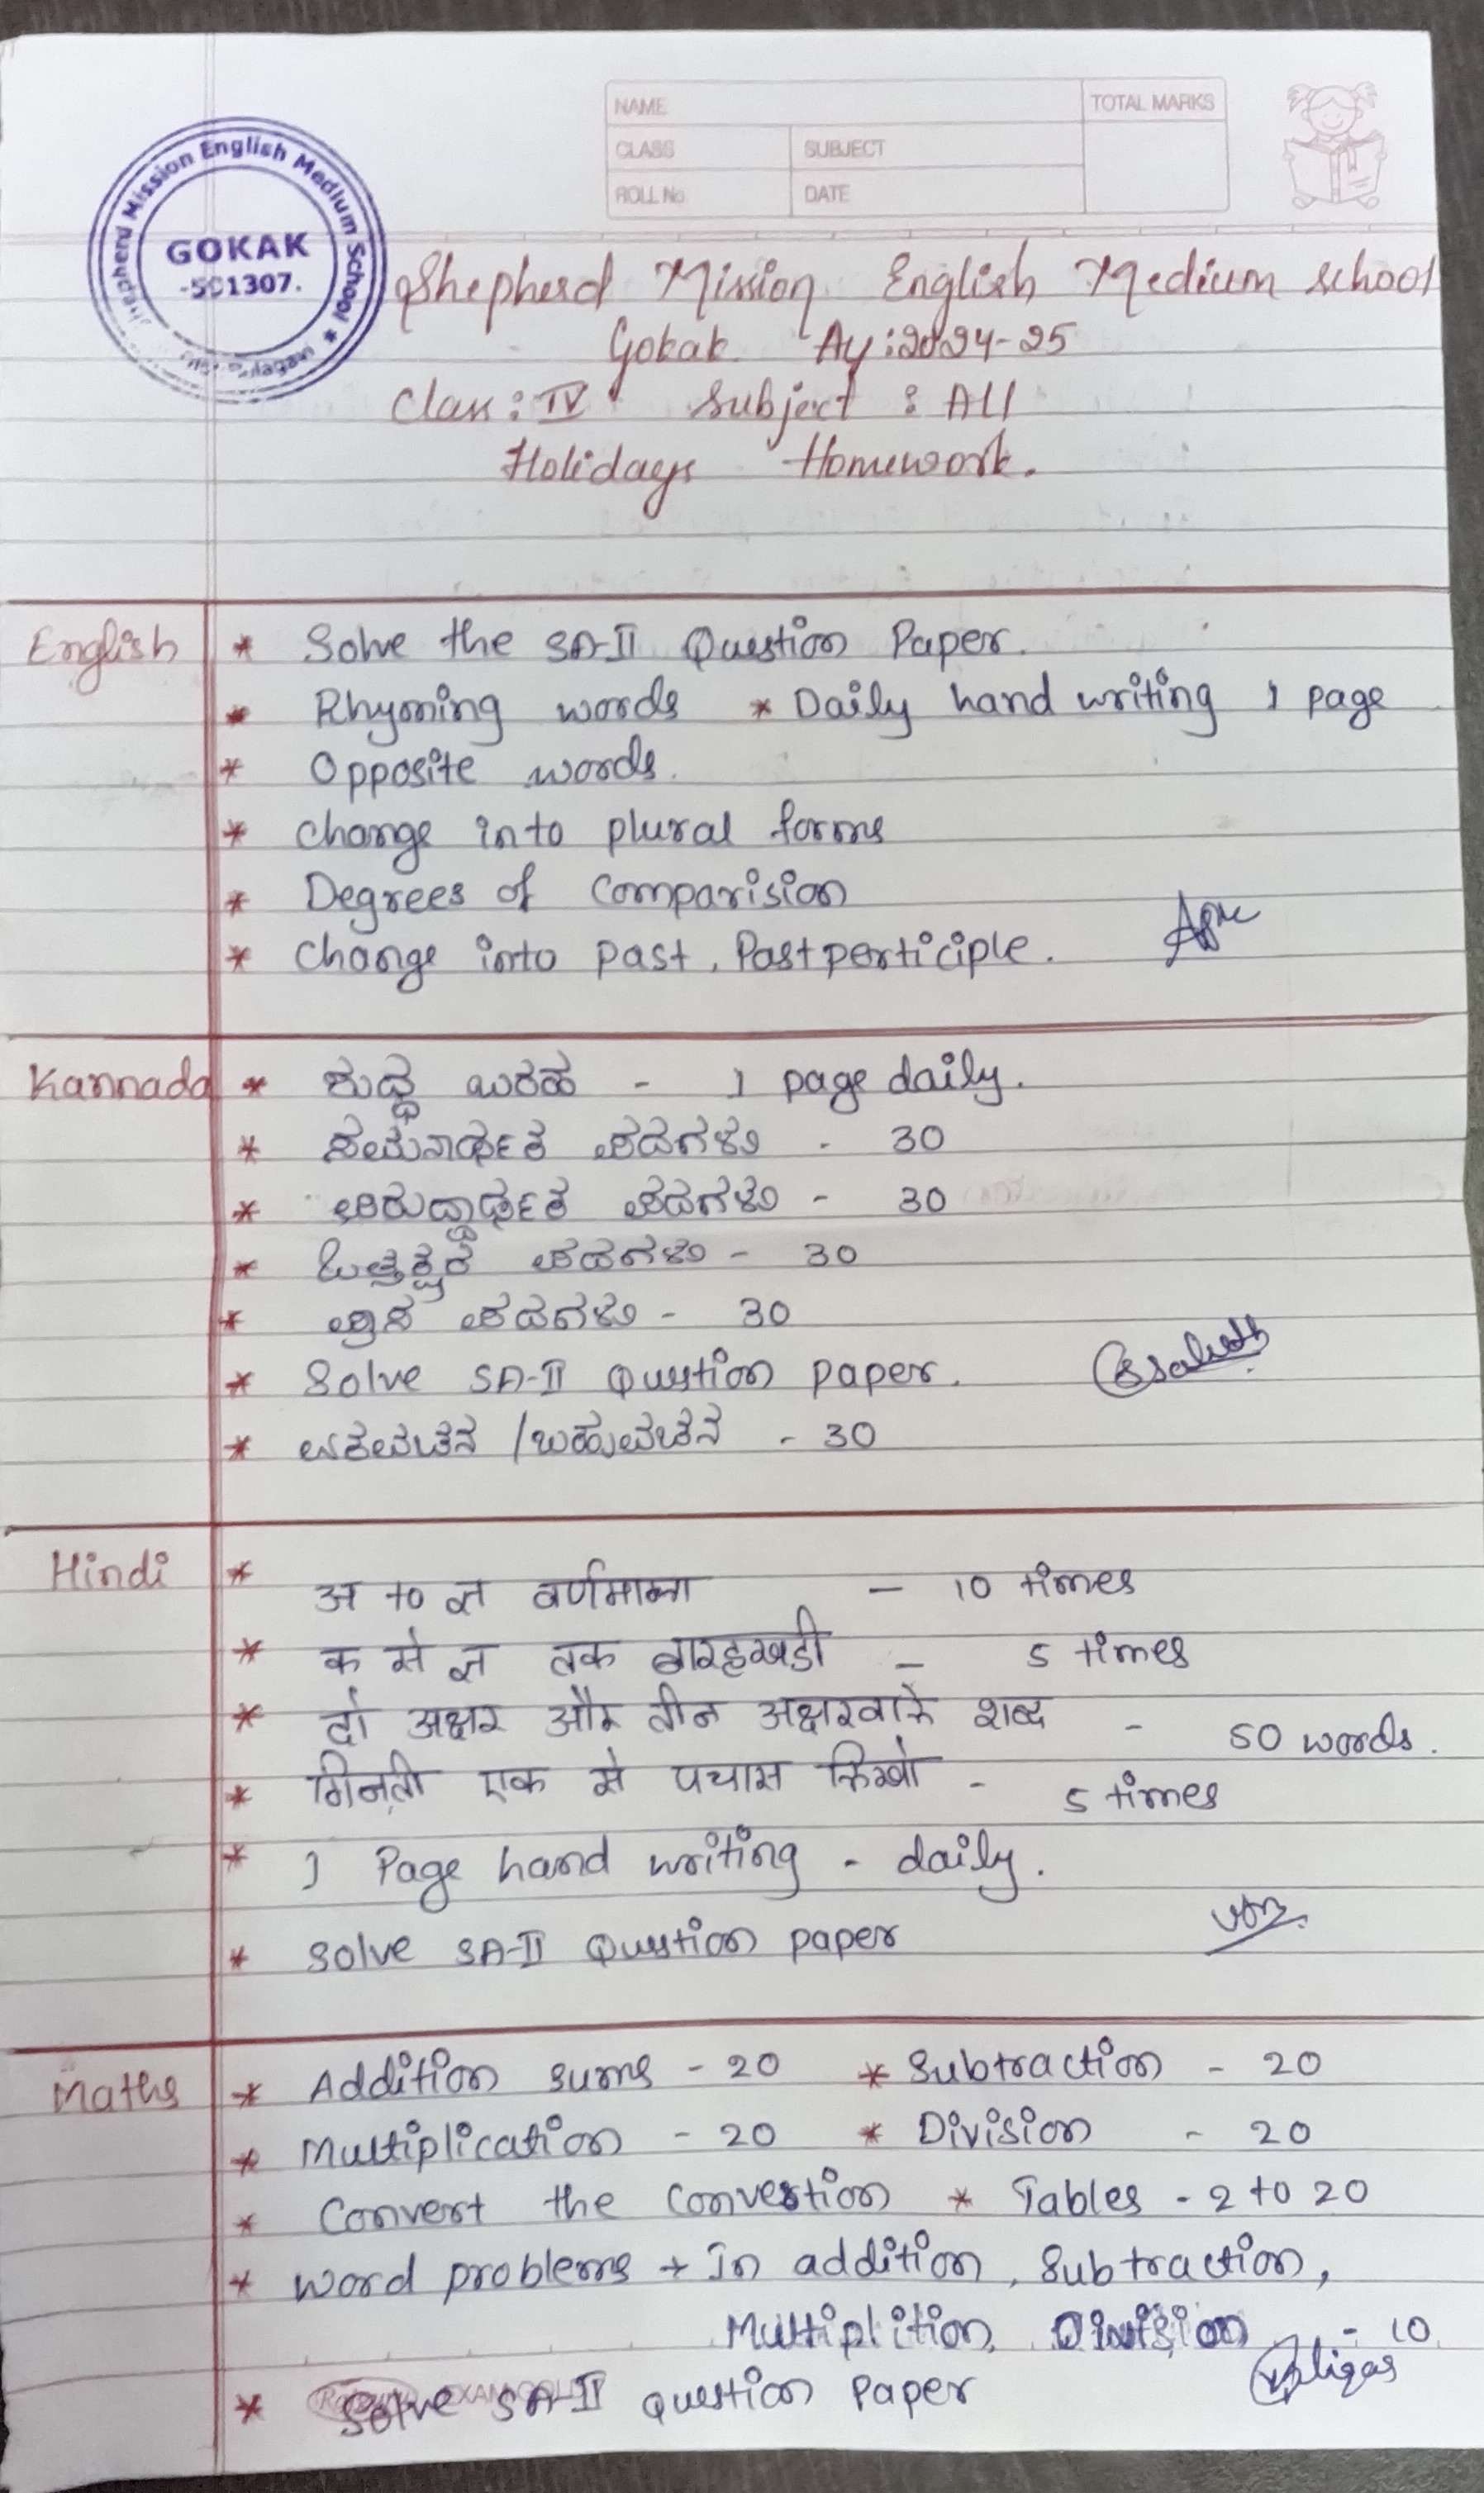 NAME
TOTAL MARKS
CLASS SUBJECT
ROLL No. DATE
Shepherd Mission English Medium School
GOKAK
-SC1307.
Shepherd Mission English Medium School
Gokak Ay:2024-25
Class: IV Subject : All
Holidays Homework.
English * Solve the SA-II Question Paper.
* Rhyming words * Daily hand writing 1 page
* Opposite words.
* Change into plural forms
* Degrees of Comparision
* Change into past, Past perticiple.
Kannada * ಶುದ್ಧ ಬರಹ - 1 page daily.
* ಸಮನಾರ್ಥಕ ಪದಗಳು - 30
* ವಿರುದ್ಧಾರ್ಥಕ ಪದಗಳು - 30
* ಒತ್ತಕ್ಷರ ಪದಗಳು - 30
* ಪ್ರಾಸ ಪದಗಳು - 30
* Solve SA-II Question paper.
* ಏಕವಚನ / ಬಹುವಚನ - 30
Hindi * अ to ज्ञ वर्णमाला - 10 times
* क से ज्ञ तक बारहखडी - 5 times
* दो अक्षर और तीन अक्षरवाले शब्द - 50 words.
* गिनती एक से पचास लिखो - 5 times
* 1 Page hand writing - daily.
* Solve SA-II Question paper
Maths * Addition sums - 20 * Subtraction - 20
* Multiplication - 20 * Division - 20
* Convert the Convertion * Tables - 2 to 20
* Word problems → In addition, Subtraction,
Multiplition, Division - 10
* Solve SA-II Question Paper